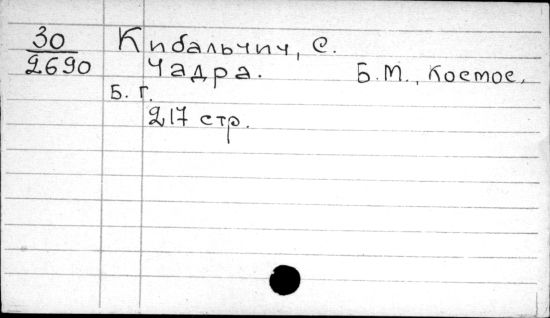 30
2690
Кибальчич, С.
Чадра. Б.М., Космос,
Б. г.
217 стр.